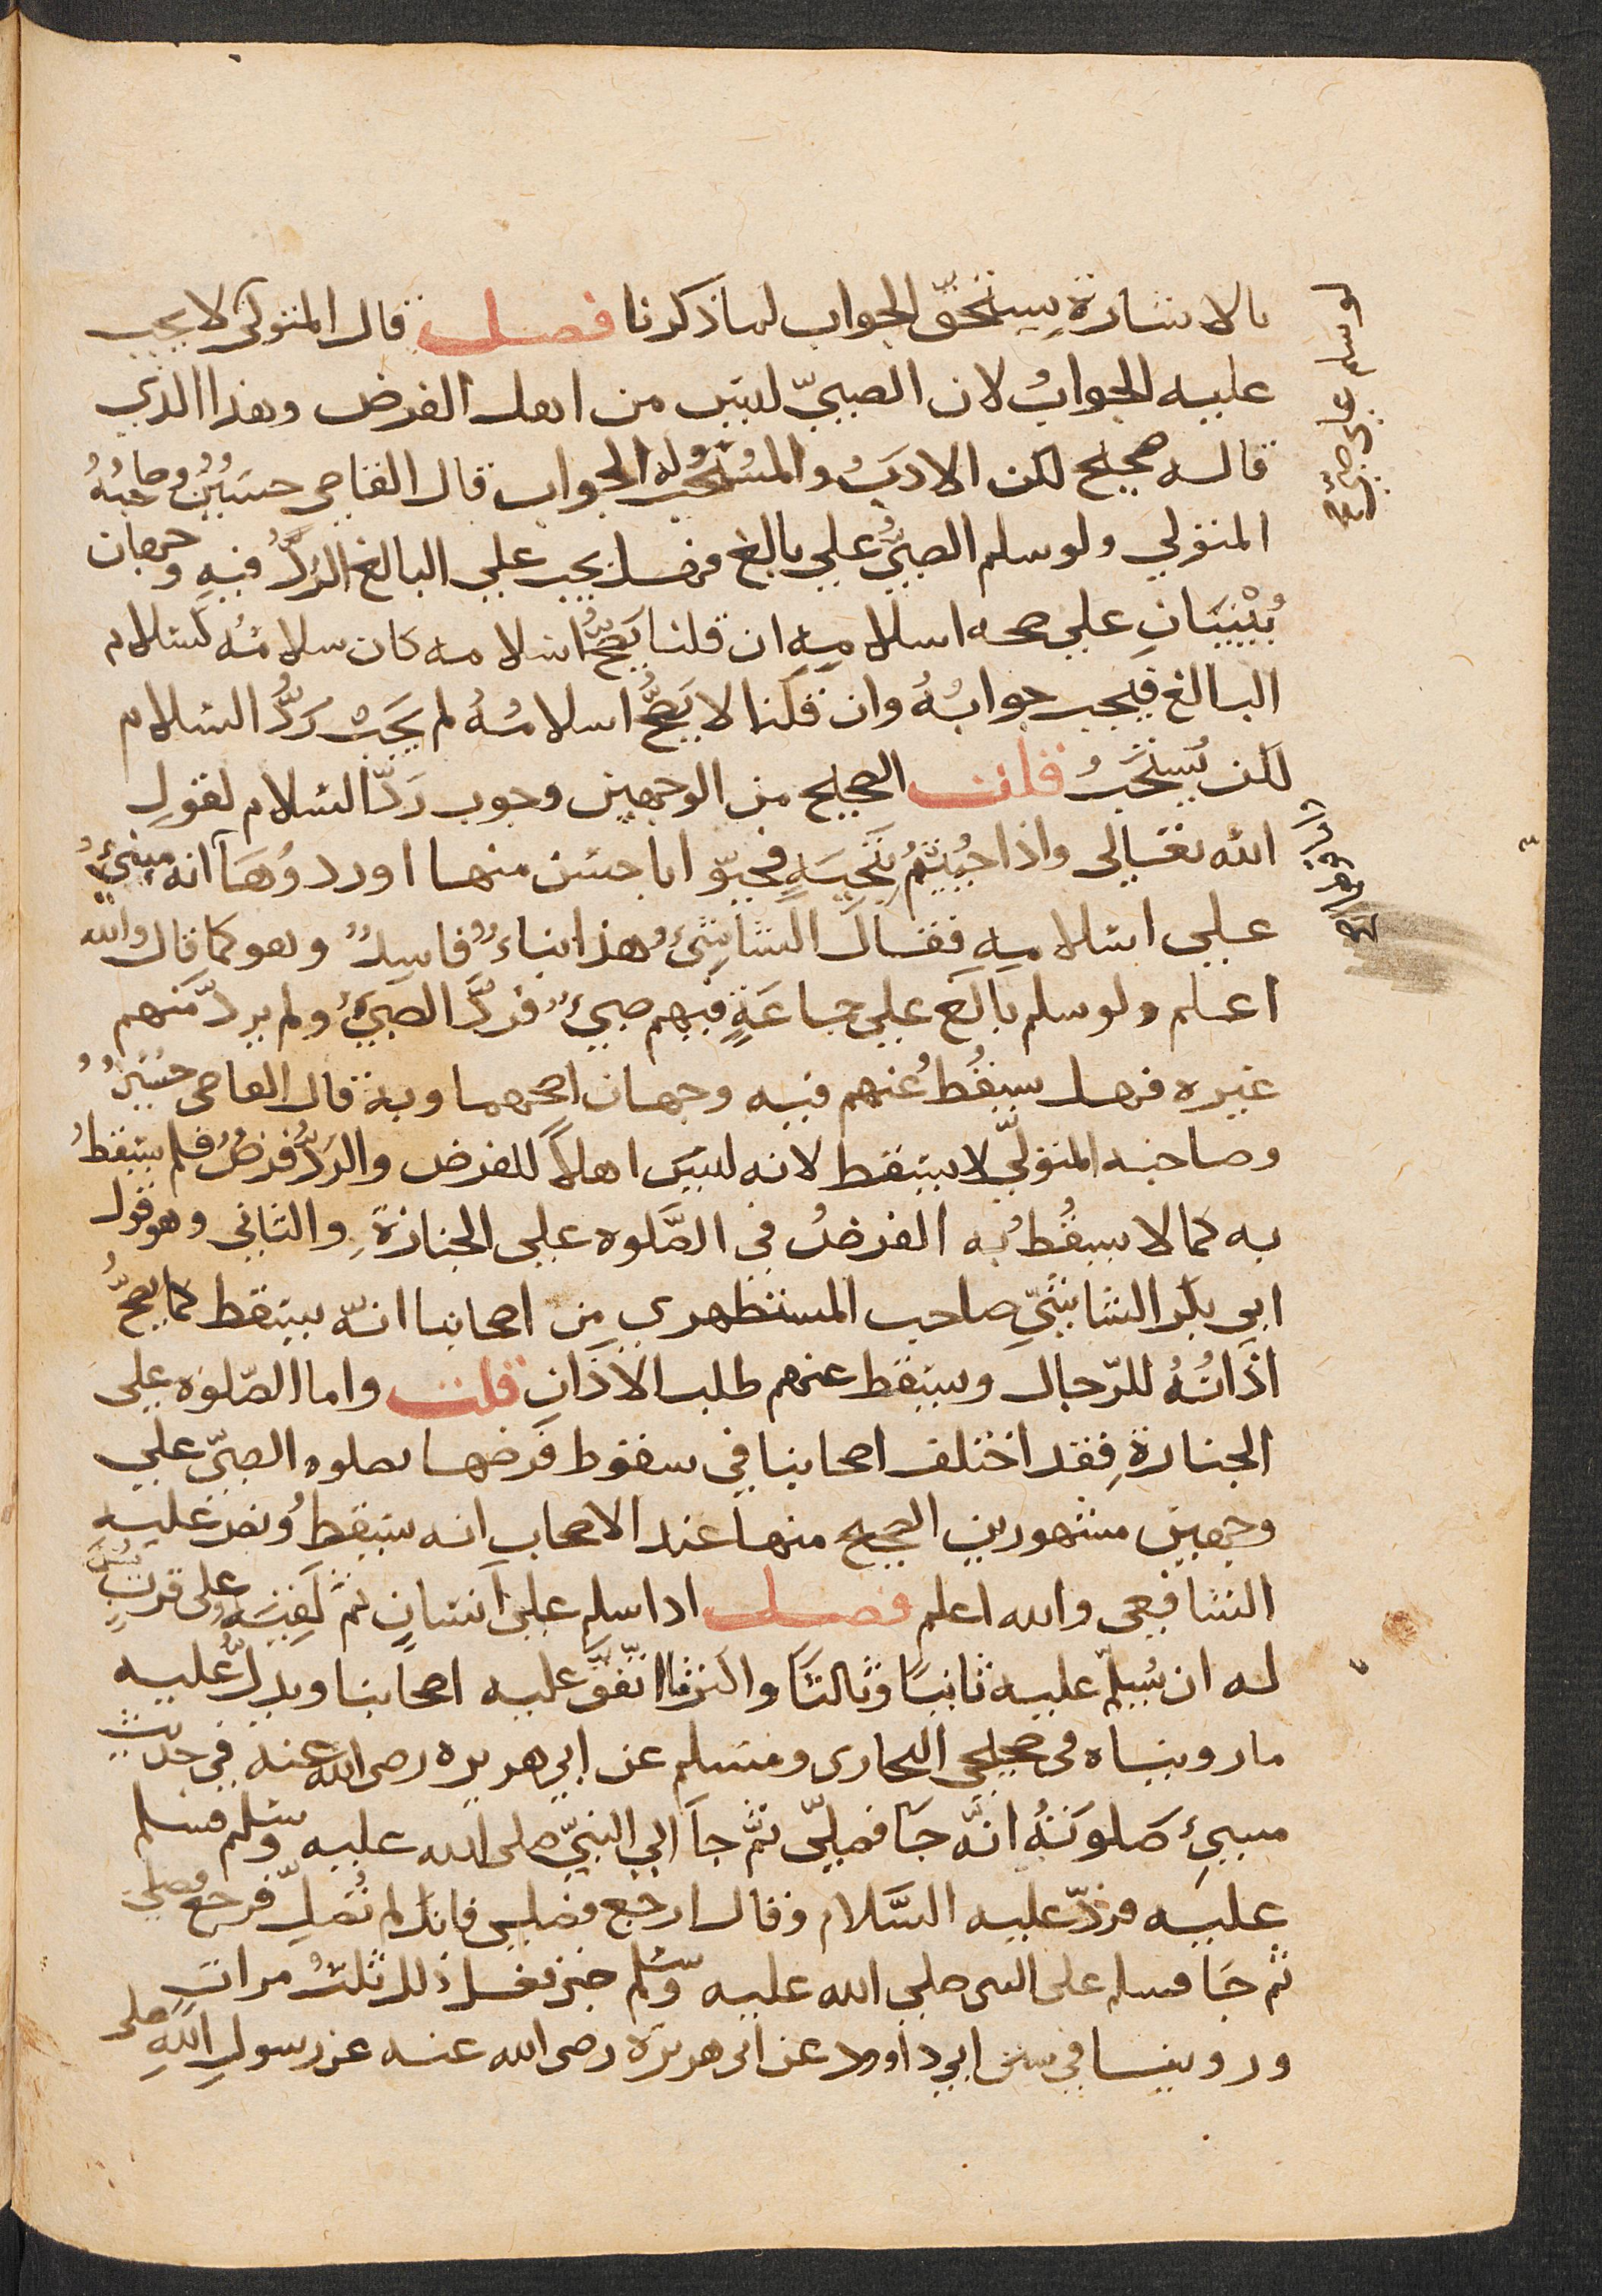 بالاشارة يستحق الجواب لما ذكرنا فصل قال المتولي لا يجب
عليه الجوابُ لان الصبيّ ليس من اهل الفرض وهذا الذي
قاله صحيح لكن الادبُ والمستحب له الجواب قال القاضي حسينٌ وصاحبهُ
المتولي ولو سلم الصبيُّ على بالغ فهل يجب على البالغ الردُّ فيه وجهان
يُبْنَيَانِ على صحه اسلامهِ ان قلنا يَصِحُّ اسلامه كان سلامُهُ كسلام
البالغ فيجب جوابُهُ وان قلنا لا يَصِحُّ اسلامُهُ لم يَجِبْ رَدُّ السلام
لكن يُستَحَبُّ قلت الصحيح من الوجهين وجوب رَدّ السلام لقولِ
الله تعالى واذا حُيِّيتُمْ بِتَحِيَةٍ فحيّوا باحسن منها او ردوُهَا انه مبنيٌّ
على اسلامهِ فقال الشاشيُّ هذا بناءٌ فاسِدٌ وهو كما قال والله
اعلم ولو سلم بالغ على جماعَةٍ فيهم صبيٌّ فردَّ الصبيُّ ولم يردّ منهم
غيره فهل يسقُطُ عنهم فيه وجهان اصحهما وبه قال القاضي حسينٌ
وصاحبه المتوليّ لا يسقط لانه ليس اهلًا للفرض والردُّ فرضٌ فلم يسقطُ
به كما لا يسقُطُ به الفرضُ في الصَّلوه على الجنازة والثاني وهو قول
ابي بكر الشاشيِّ صاحب المستظهري من اصحابنا انّه يسقط كما يصحُّ
اذَانُهُ للرّجال ويسقط عنهم طلب الاذان قلت واما الصّلوه على
الجنازةِ فقد اختلف اصحابنا في سقوط فرضها بصلوه الصبيّ على
وجهين مشهورين الصحيح منهما عند الاصحاب انه يسقطُ ونص عليه
الشافعي والله اعلم فصل اذا سلم على انسانٍ ثم لقيَه على قربٍ يُسَنُّ
له ان يُسلّم عليه ثانيًا وثالثًا واكثر اتّفقَ عليه اصحابنا ويدلُّ عليه
ما رويناه في صحيحي البخاري ومسلم عن ابي هريره رضي الله عنه في حديث
مسيِئ صَلوتَهُ انَّه جَا فصلّى ثمَّ جا الى النبيّ صلى الله عليه وسلم فسلم
عليه فردّ عليه السَّلام وقال ارجع فصلي فانك لم تُصلِّ فرجع فصلى
ثم جَا فسلم على النبي صلى الله عليه وسلّم حتى فعل ذلك ثلثُ مراتٍ
وروينا في سنن ابي داود عن ابي هريره رضي الله عنه عن رسولِ اللهِ صلى
لو سلم على صبيٍّ